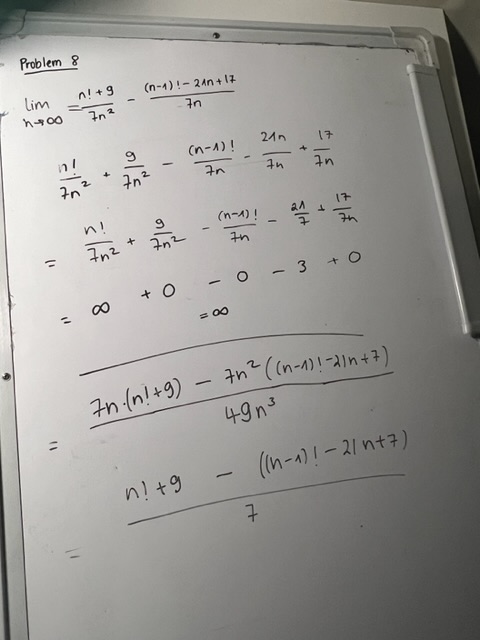 Problem 8
lim n→∞ = (n!+9)/(7n²) − ((n-1)! − 21n+17)/(7n)
n!/(7n²) + 9/(7n²) − (n-1)!/(7n) − 21n/(7n) + 17/(7n)
= n!/(7n²) + 9/(7n²) − (n-1)!/(7n) − 21/7 + 17/(7n)
= ∞ + 0 − 0 − 3 + 0
= ∞
= (7n·(n!+9) − 7n²((n-1)!−21n+7))/(49n³)
= (n!+9 − ((n-1)!−21n+7))/7